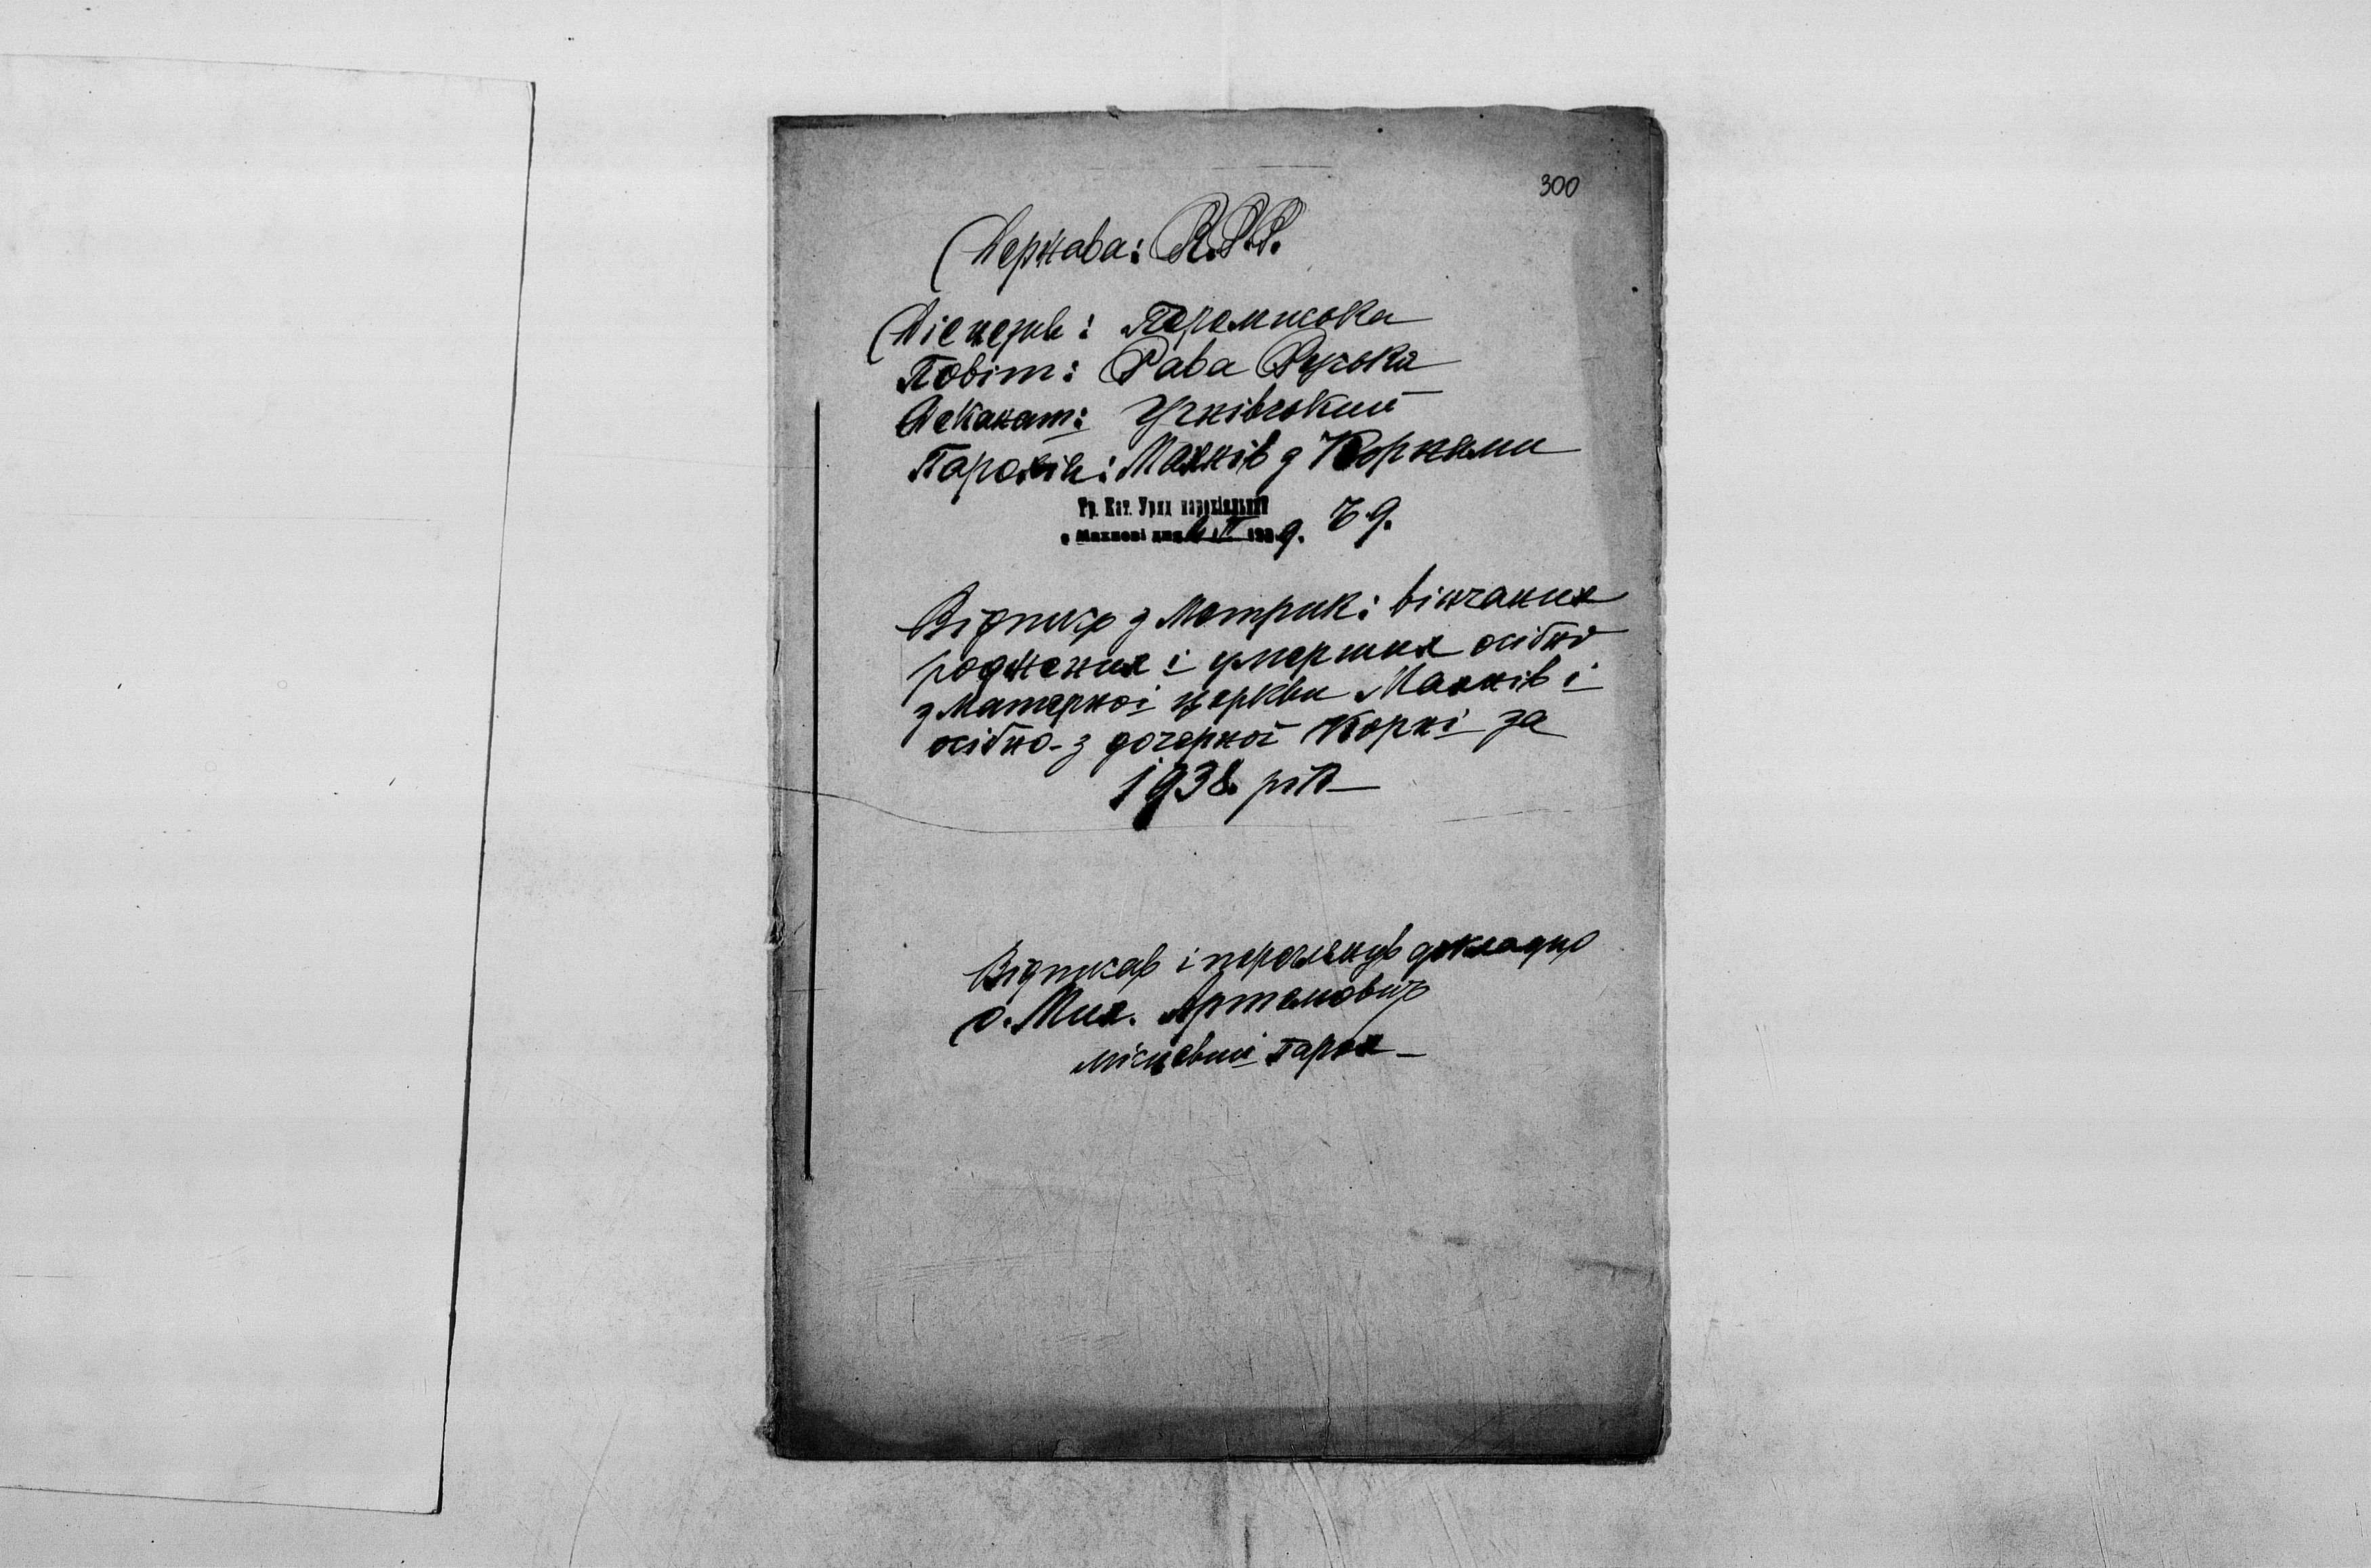 300
Держава: R.P.P.
Дієцезія: Перемиська
Повіт: Рава Руська
Деканат: Угнівський
Парохія: Махнів з Корнями
Гр. Кат. Уряд парохіяльний
в Махнові дня II 1939. Ч 9.
Відпис з Метрик: вінчаних
роджених і умерших осібно
з Матерної церкви Махнів і
осібно з дочерної Корні за
1938 рік
Відписав і переглянув докладно
о. Мих. Артемович
місцевий парох